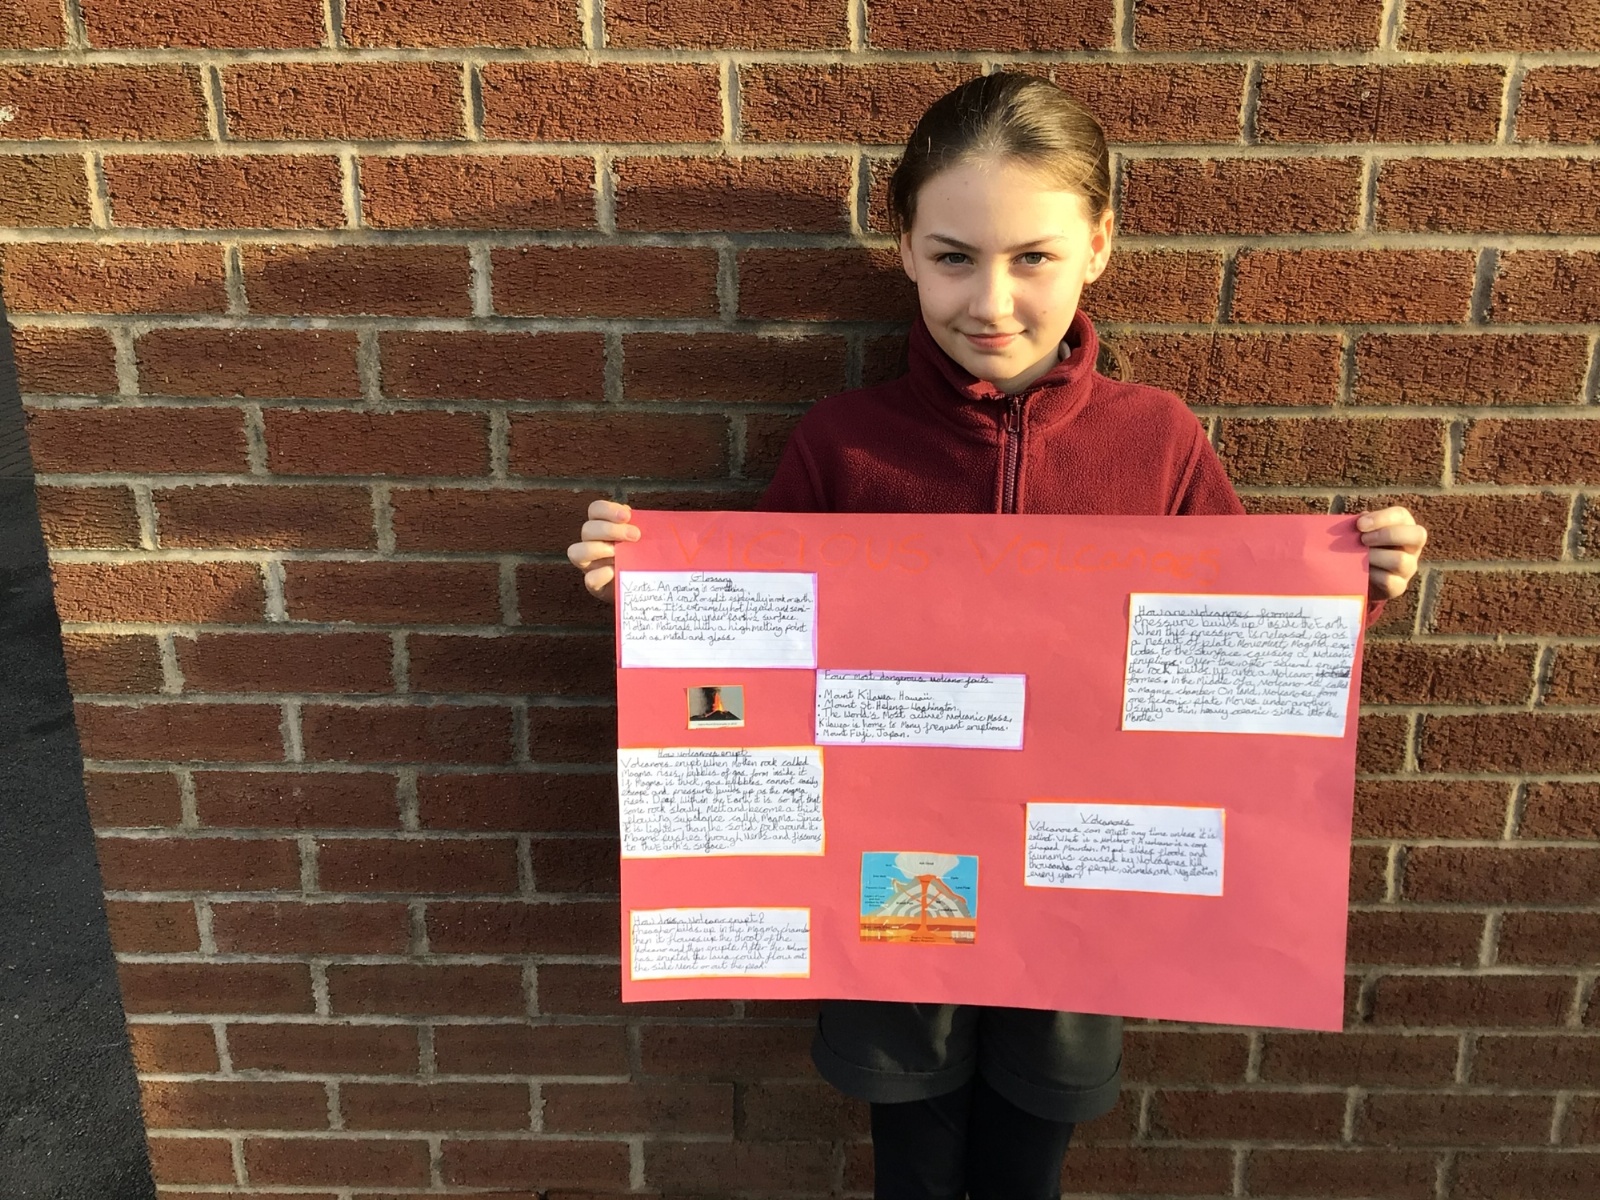 VICIOUS Volcanoes
Glossary
Vents: An opening is something
Fissures: A crack or split especially in rock or earth
Magma: It's extremely hot liquid and semi-
liquid rock located under Earth's surface.
Molten: Materials with a high melting point
such as metal and glass.
Four most dangerous volcano facts
• Mount Kilauea, Hawaii.
• Mount St. Helens Washington.
• The World's Most active volcanic Mass,
Kilauea is home to Many frequent eruptions.
• Mount Fuji, Japan.
How volcanoes erupt?
Volcanoes erupt when molten rock called
Magma rises, bubbles of gas form inside it
If Magma is thick, gas bubbles cannot easily
escape and pressure builds up as the magma
rises. Deep within the Earth it is so hot that
some rock slowly Melt and become a thick
flowing substance called Magma. Since
it is lighter than the solid rock around it,
Magma pushes through vents and fissures
to the Earth's surface.
How does a volcano erupt?
builds up in the Magma chamber
then it flows up the throt of the
volcano and then erupts. After the volcano
has erupted the lava could flow out
the side vent or out the
How are volcanoes formed
Pressure builds up inside the Earth
When this pressure is released, eg as
a result of plate Movement, Magma
to the surface causing a volcanic
eruption. Over time after several
the rock builds up and a volcano
formes. In the Middle of a volcano is called
a Magma chamber. On land, volcanoes form
one tectonic plate Moves under another.
Usually a thin, heavy oceanic sinks into the
Mantle.
Volcanoes
Volcanoes can erupt any time unless it is
extinct. What is a volcano? A volcano is a cone
shaped Mountain. Mud slides floods and
tsunamis caused by volcanoes kill
thousands of people, animals and vegetation
every year.